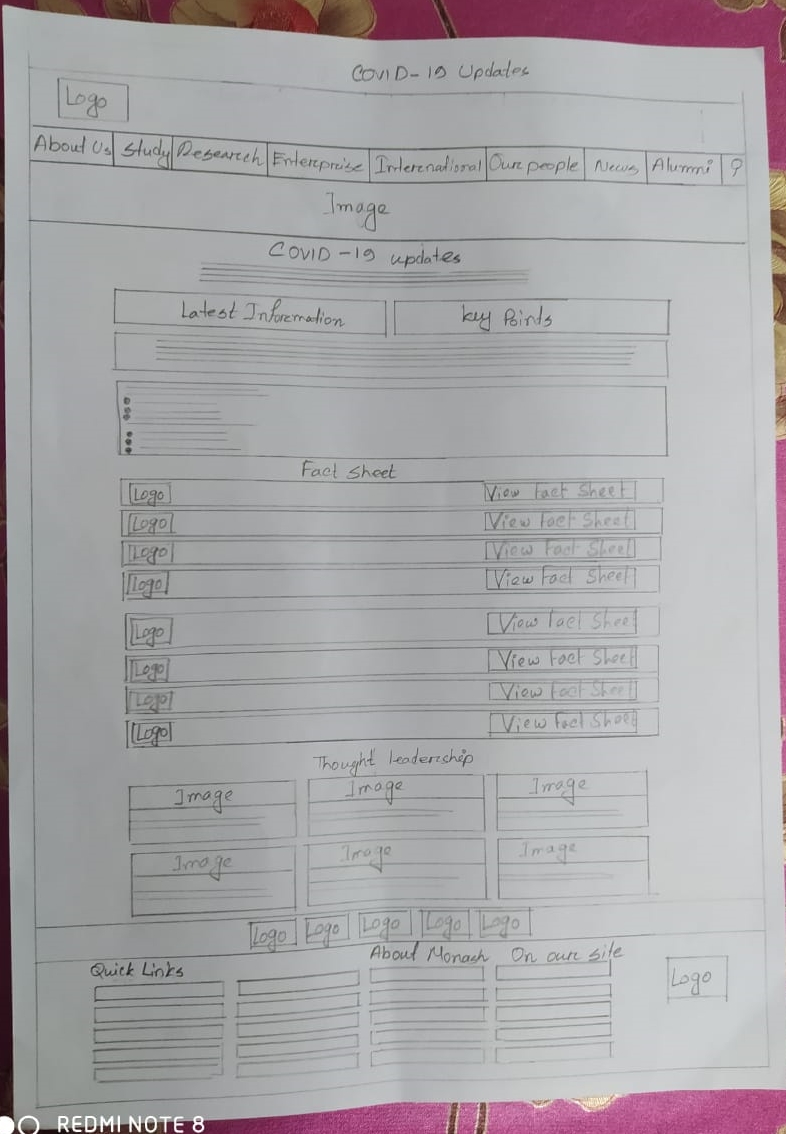 COVID-19 Updates
Logo
About Us Study Research Enterprise International Our people News Alumni ?
Image
COVID-19 updates
Latest Information Key Points
Fact Sheet
Logo View Fact Sheet
Logo View Fact Sheet
Logo View Fact Sheet
Logo View Fact Sheet
Logo View Fact Sheet
Logo View Fact Sheet
Logo View Fact Sheet
Logo View Fact Sheet
Thought leadership
Image Image Image
Image Image Image
Logo Logo Logo Logo Logo
Quick Links About Monash On our site
Logo
REDMI NOTE 8